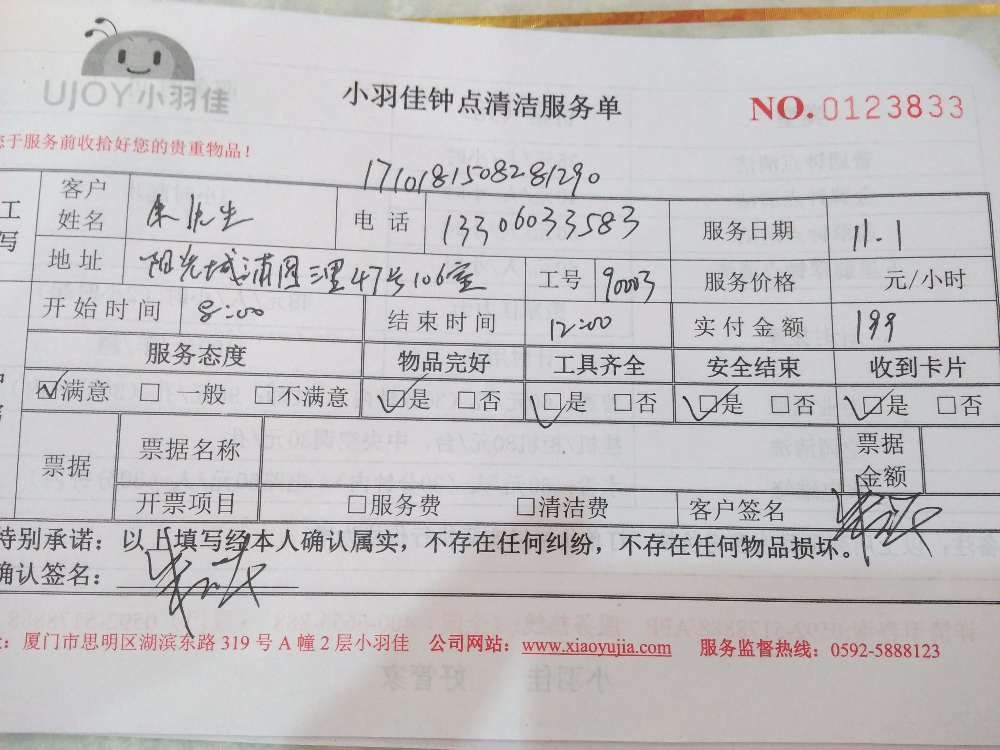 UJOY小羽佳
小羽佳钟点清洁服务单
NO.0123833
于服务前收拾好您的贵重物品!
1710181508281290
工
写
客户姓名
先生
电话
13306033583
服务日期
11.1
地址
阳光城浦园三里47号106室
工号
90003
服务价格
元/小时
开始时间
8:00
结束时间
12:00
实付金额
199
服务态度
物品完好
工具齐全
安全结束
收到卡片
☑满意 □一般 □不满意
☑是 □否
☑是 □否
☑是 □否
☑是 □否
票据
票据名称
票据金额
开票项目
□服务费 □清洁费
客户签名
特别承诺:以上填写经本人确认属实,不存在任何纠纷,不存在任何物品损坏。
确认签名:
:厦门市思明区湖滨东路 319 号 A 幢 2 层小羽佳 公司网站:www.xiaoyujia.com 服务监督热线:0592-5888123